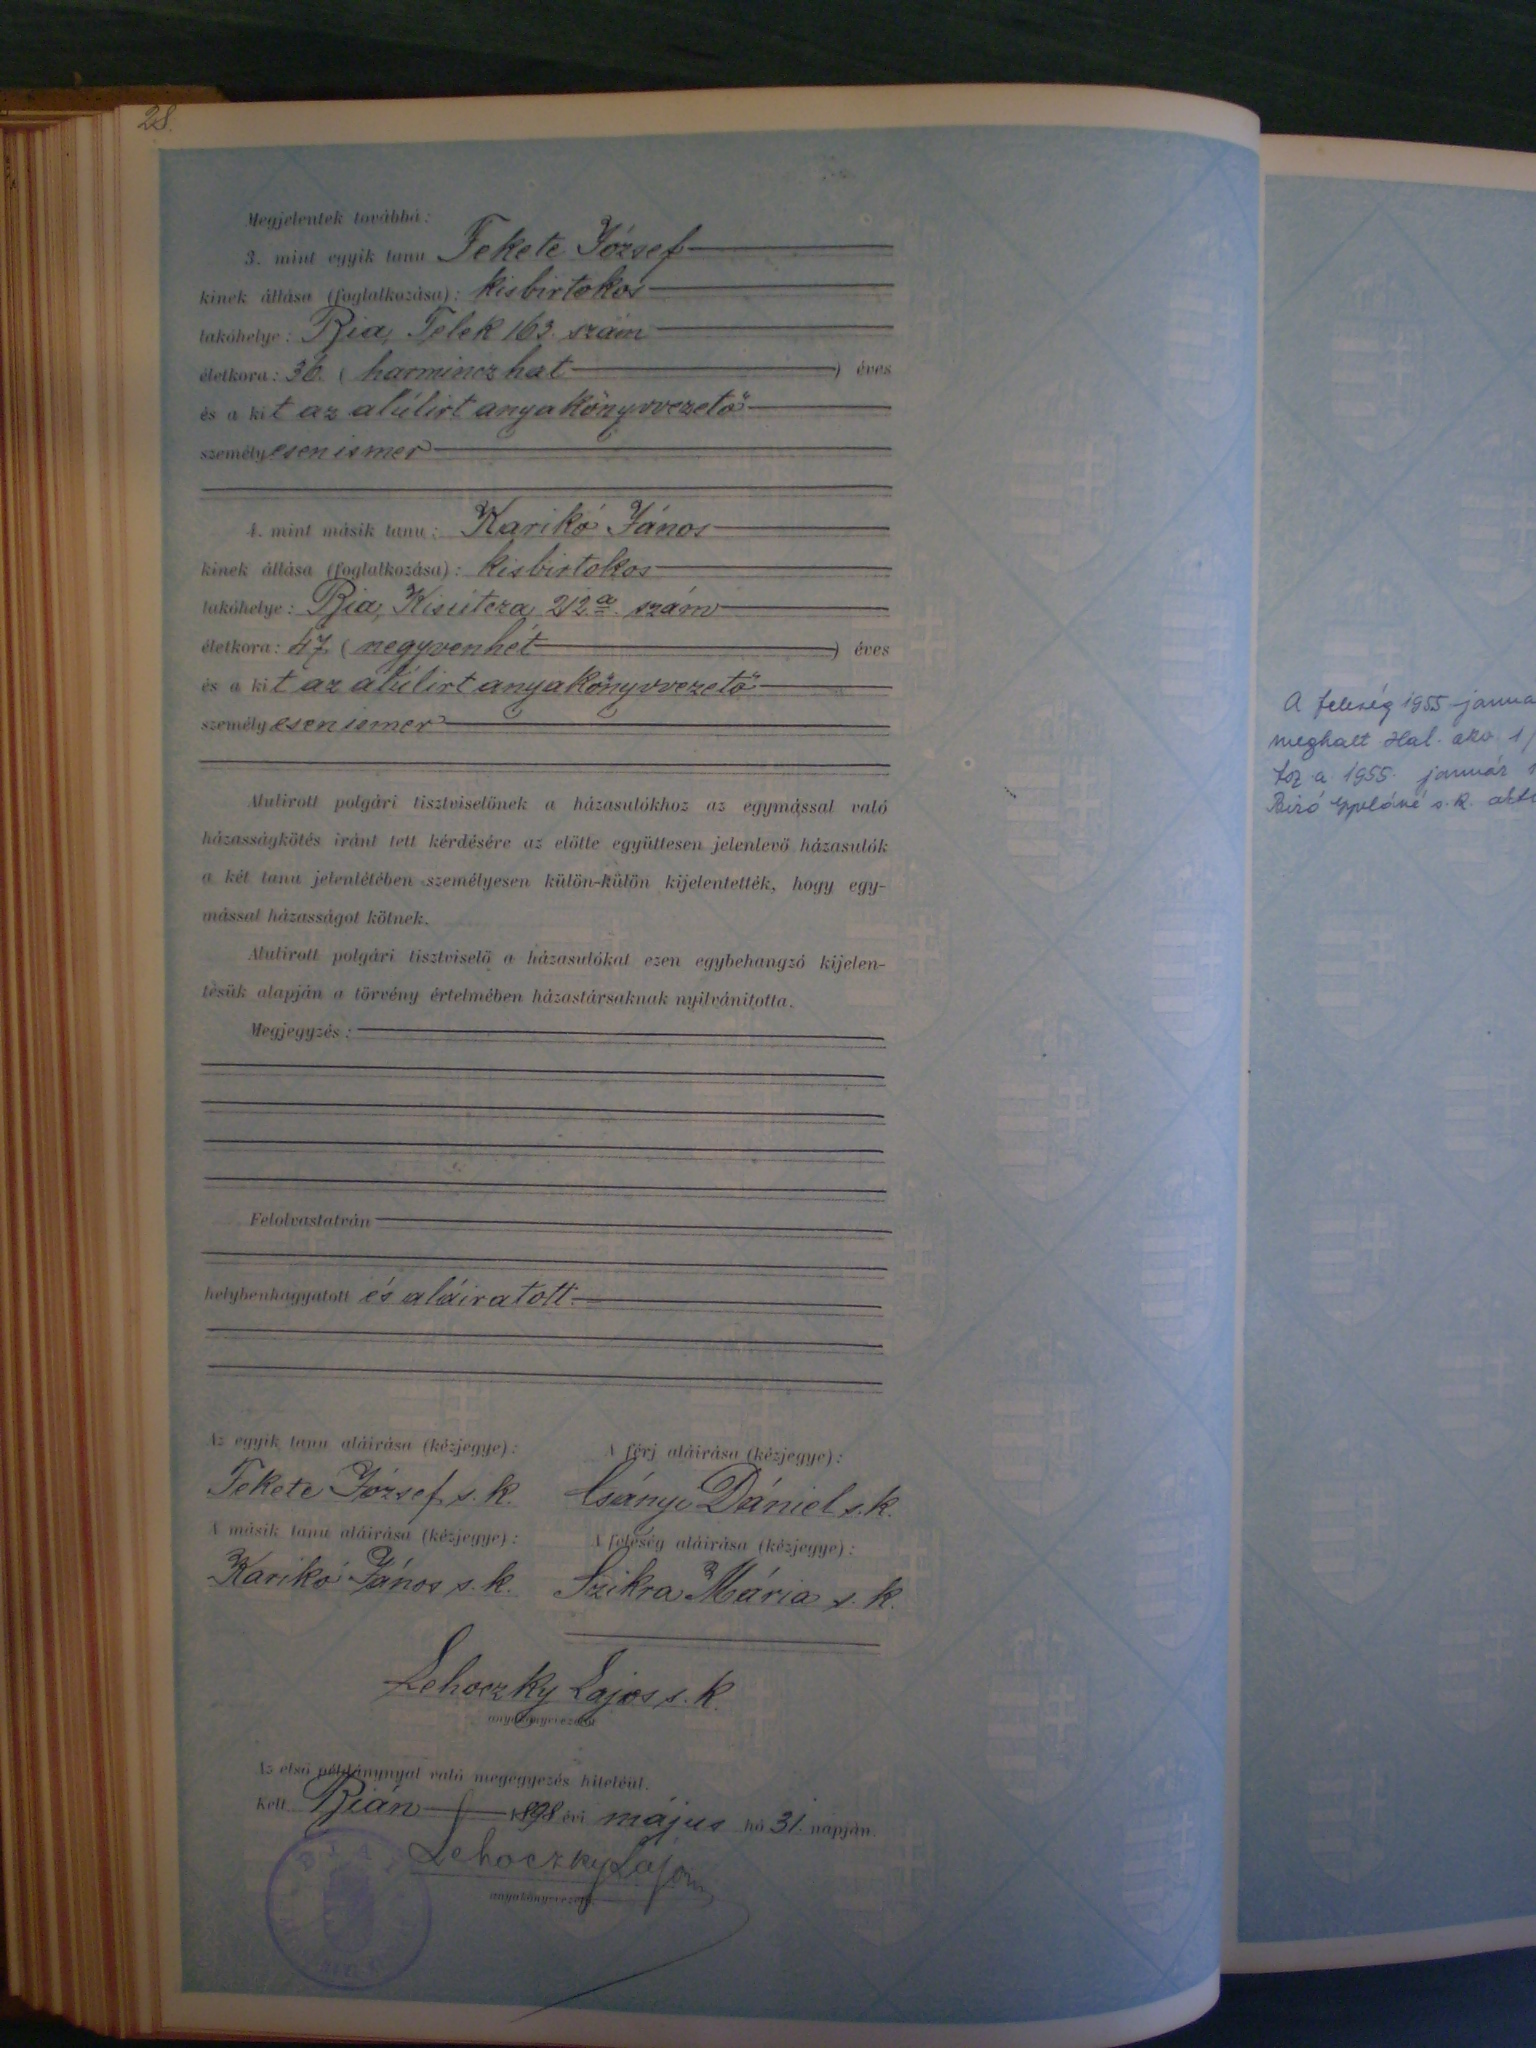 28.
Megjelentek továbbá:
3. mint egyik tanu Fekete József
kinek állása (foglalkozása): kisbirtokos
lakóhelye: Bia, Telek 163. szám
életkora: 36. (harminczhat) éves
és a kit az alúlirt anyakönyvvezető
személyesen ismer
4. mint másik tanu: Karikó János
kinek állása (foglalkozása): kisbirtokos
lakóhelye: Bia, Kisútcza, 212.a. szám
életkora: 47. (negyvenhét) éves
és a kit az alúlirt anyakönyvvezető
személyesen ismer
Alulirott polgári tisztviselőnek a házasulókhoz az egymással való
házasságkötés iránt tett kérdésére az előtte együttesen jelenlevő házasulók
a két tanu jelenlétében személyesen külön-külön kijelentették, hogy egy-
mással házasságot kötnek.
Alulirott polgári tisztviselő a házasulókat ezen egybehangzó kijelen-
tésük alapján a törvény értelmében házastársaknak nyilvánitotta.
Megjegyzés:
Felolvastatván
helybenhagyatott és aláiratott.
Az egyik tanu aláirása (kézjegye): A férj aláirása (kézjegye):
Fekete József s. k. Csányi Dániel s. k.
A másik tanu aláirása (kézjegye): A feleség aláirása (kézjegye):
Karikó János s. k. Szikra Mária s. k.
Lehoczky Lajos s. k.
anyakönyvvezető
Az első példánynyal való megegyezés hiteléül.
Kelt Bián 1898 évi május hó 31. napján.
Lehoczky Lajos
anyakönyvvezető.
A feleség 1955 janua
meghalt Hal. akv 1/
1955. január 1
Biró s. k.